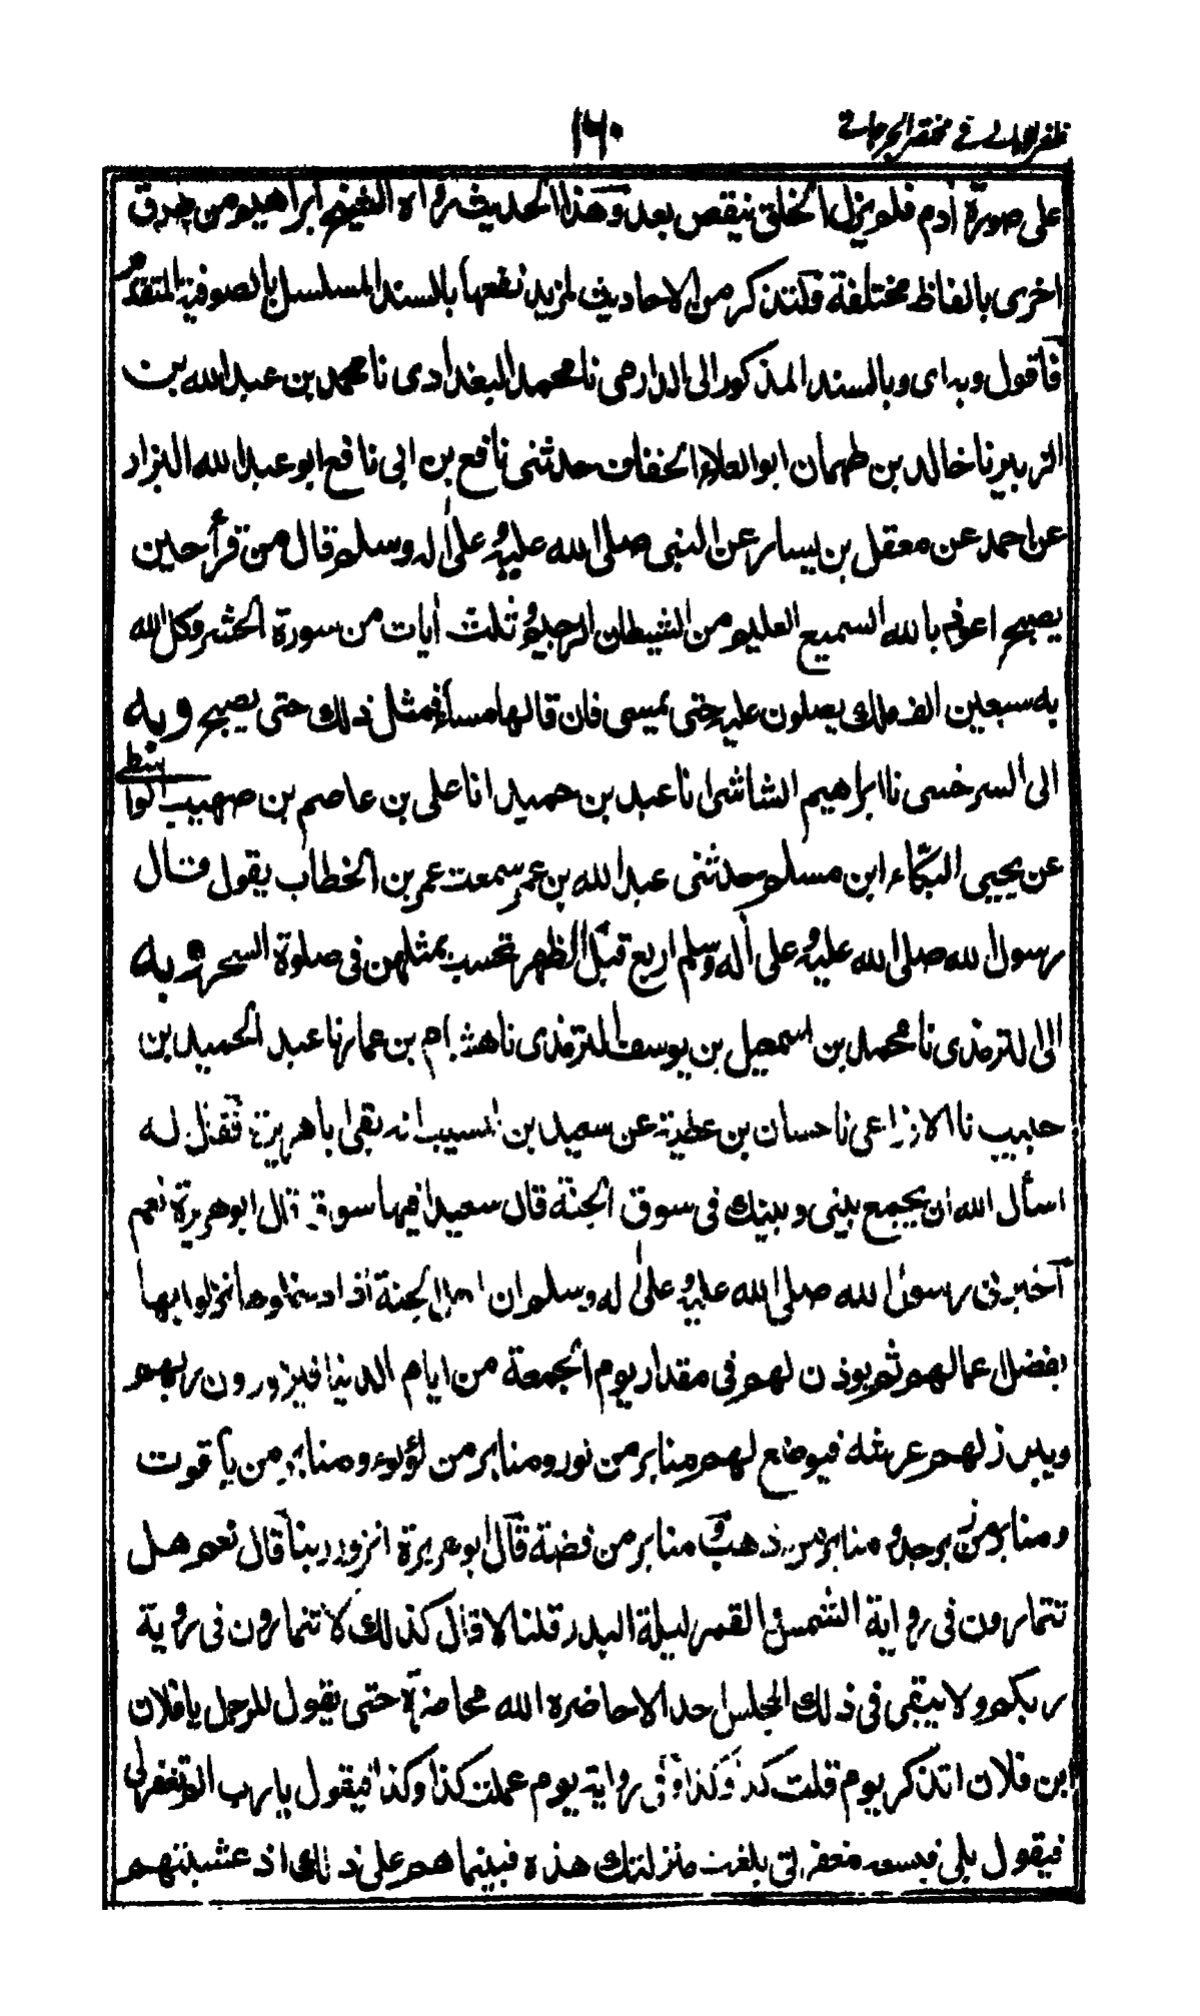 ظفر الامانی فی مختصر الجرجانی
۱۶۰
علی صورة اٰدم فلم یزل الخلق ینقص بعد وهذا الحدیث رواه الشیخ ابراهیم من طرق
اخری بالفاظ مختلفة ولنذکر من الاحادیث لمزید نفعها بالسند المسلسل بالصوفیة المتقدم
فاقول وبدای وبالسند المذکور الی الدارمی نا محمد البغدادی نا محمد بن عبد الله بن
الزبیر نا خالد بن طهمان ابو العلاء الخفاف حدثنی نافع بن ابی نافع ابو عبد الله البزار
عن احمد عن معقل بن یسار عن النبی صلی الله علیه وعلی اٰله وسلم قال من قرأ حین
یصبح اعوذ بالله السمیع العلیم من الشیطان الرجیم وثلث اٰیات من سورة الحشر وکل الله
به سبعین الف ملك یصلون علیه حتی یمسی فان قالها مساء فمثل ذلك حتی یصبح وبه
الی السرخسی نا ابراهیم الشاشی انا عبد بن حمید انا علی بن عاصم بن صهیب الواسطی
عن یحیی البکّاء ابن مسلم حدثنی عبد الله بن عمر سمعت عمر بن الخطاب یقول قال
رسول الله صلی الله علیه وعلی اٰله وسلم اربع قبل الظهر تحسب بمثلهن فی صلوة السحر وبه
الی الترمذی نا محمد بن اسمعیل بن یوسف الترمذی نا هشام بن عمار نا عبد الحمید بن
حبیب نا الاوزاعی نا حسان بن عطیة عن سعید بن المسیب انه لقی ابا هریرة فقال له
اسأل الله ان یجمع بینی وبینك فی سوق الجنة قال سعید افیها سوق قال ابو هریرة نعم
اخبرنی رسول الله صلی الله علیه وعلی اٰله وسلم ان اهل الجنة اذا دخلوها نزلوا بها
بفضل اعمالهم ثم یوذن لهم فی مقدار یوم الجمعة من ایام الدنیا فیزورون ربهم
ویبرز لهم عرشه فیوضع لهم منابر من نور ومنابر من لؤلوء ومنابر من یاقوت
ومنابر من زبرجد ومنابر من ذهب ومنابر من فضة قال ابو هریرة انزور ربنا قال نعم هل
تتمارون فی روایة الشمس والقمر لیلة البدر قلنا لا قال کذلك لا تتمارون فی رویة
ربکم ولا یبقی فی ذلك المجلس احد الا حاضره الله محاضرة حتی یقول للرجل یا فلان
ابن فلان اتذکر یوم قلت کذا وکذا وفی روایة یوم عملت کذا وکذا فیقول یا رب الم تغفر لی
فیقول بلی فبسعة مغفرتی بلغت منزلتك هذه فبینما هم علی ذلك اذ غشیتهم